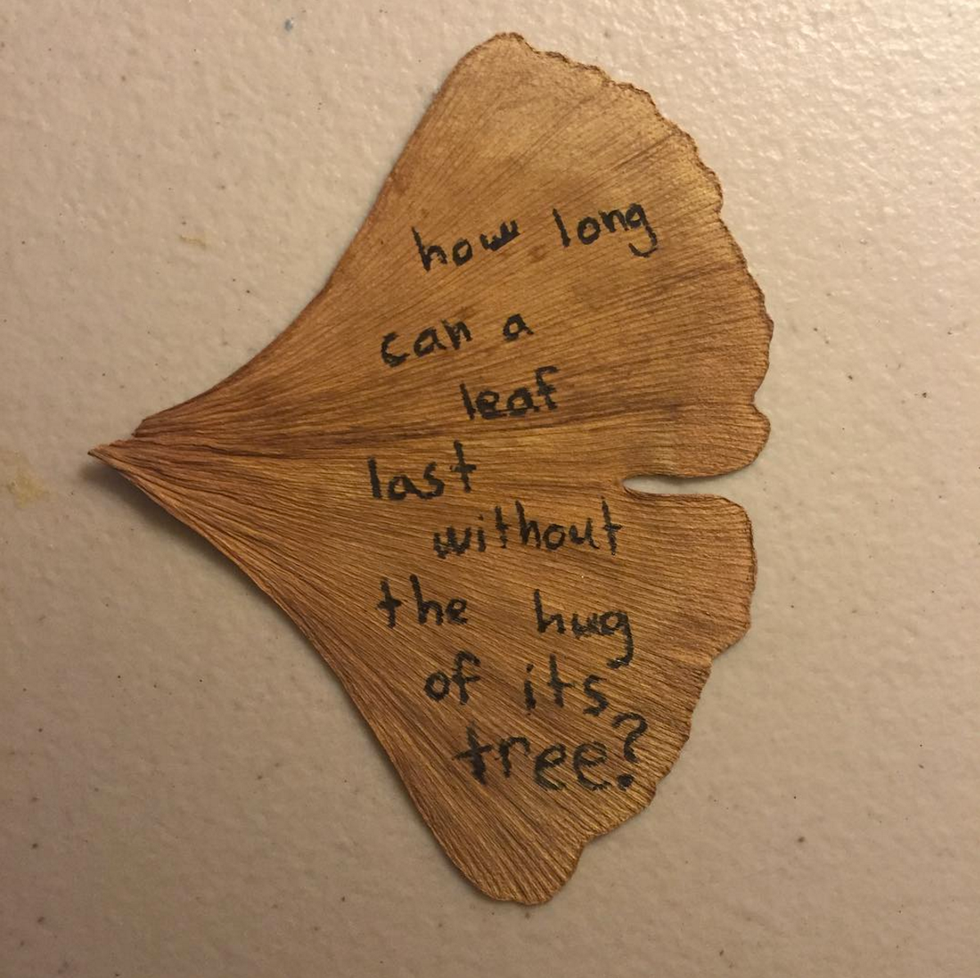 how long
can a
leaf
last
without
the hug
of its
tree?